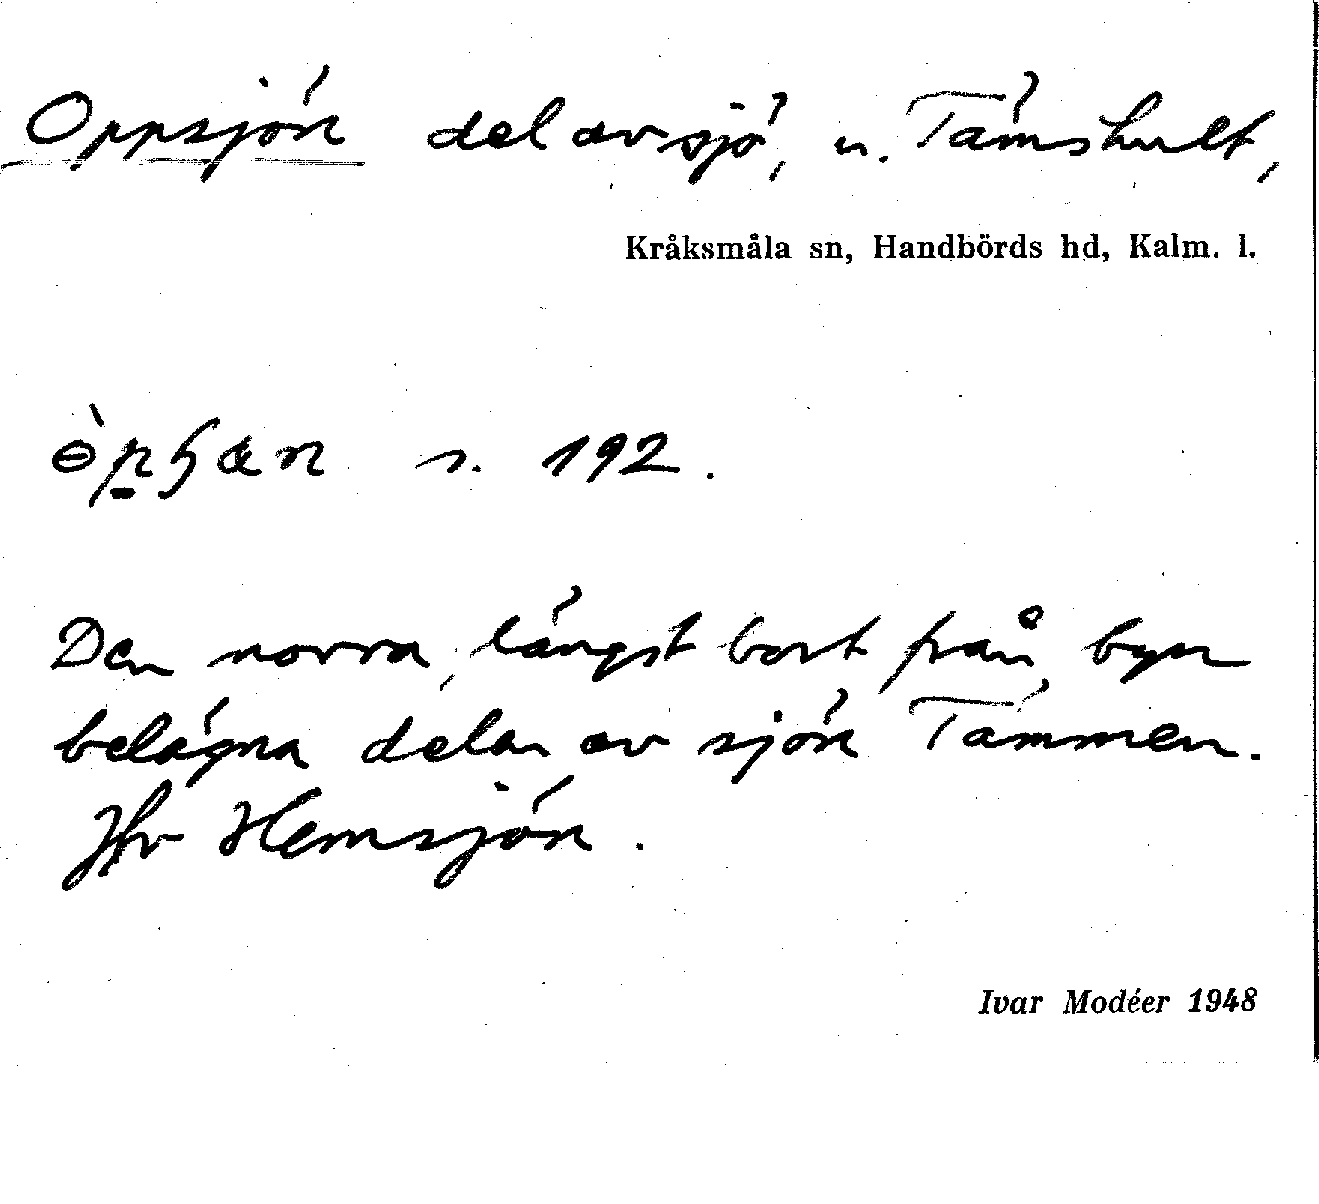 Oppsjön del av sjö, u. Tämshult,
Kråksmåla sn, Handbörds hd, Kalm. l.
s. 192.
Den norra, längst bort från byn
belägna delen av sjön Tämmen.
Jfr Hemsjön.
Ivar Modéer 1948